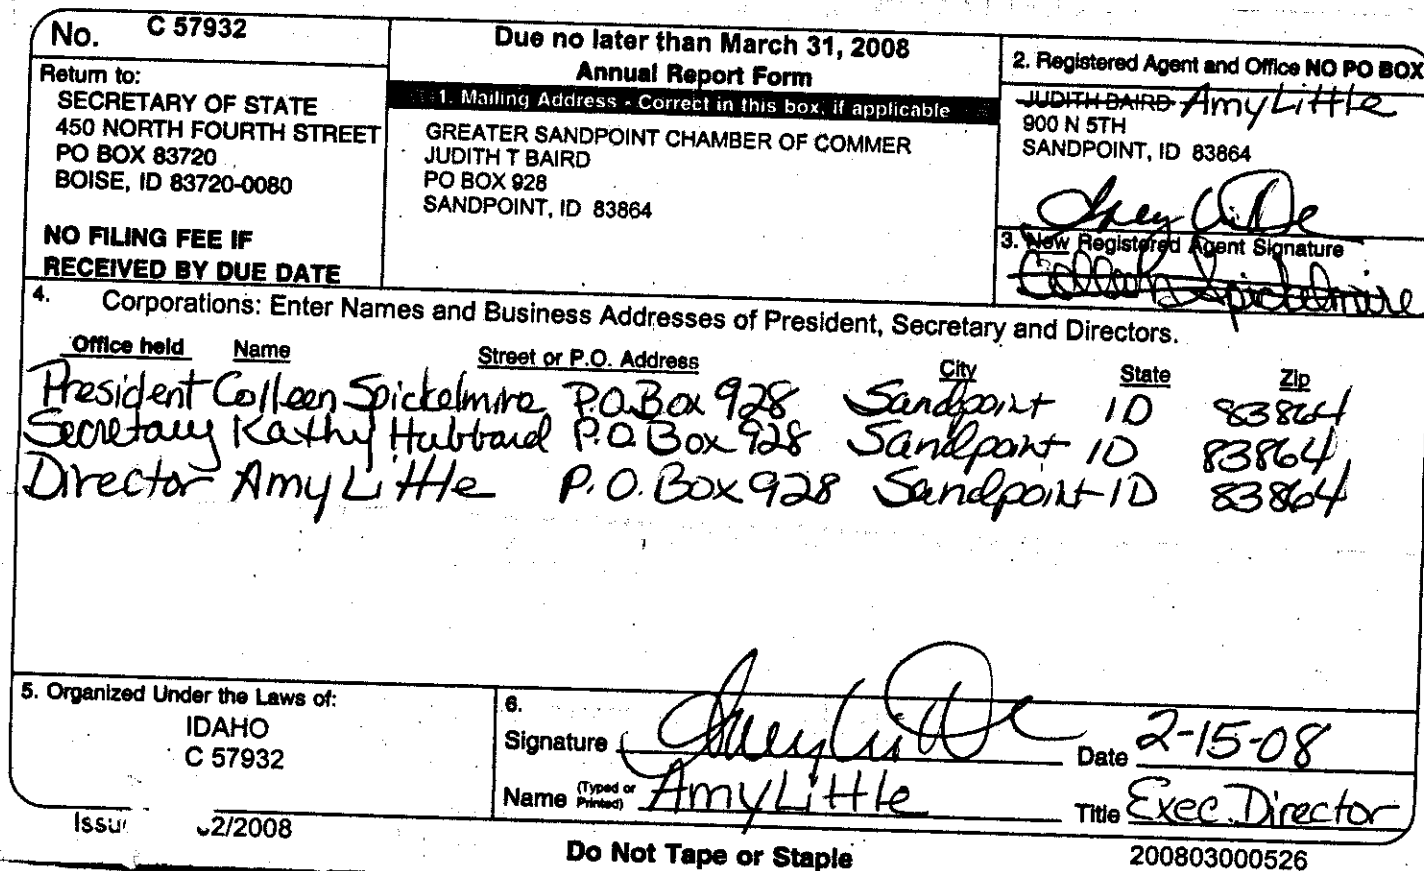 No. C 57932
Return to:
SECRETARY OF STATE
450 NORTH FOURTH STREET
PO BOX 83720
BOISE, ID 83720-0080
NO FILING FEE IF
RECEIVED BY DUE DATE
Due no later than March 31, 2008
Annual Report Form
1. Mailing Address - Correct in this box, if applicable
GREATER SANDPOINT CHAMBER OF COMMER
JUDITH T BAIRD
PO BOX 928
SANDPOINT, ID 83864
2. Registered Agent and Office NO PO BOX
JUDITH BAIRD Amy Little
900 N 5TH
SANDPOINT, ID 83864
Amy Little
3. New Registered Agent Signature
Colleen Spickelmire
4. Corporations: Enter Names and Business Addresses of President, Secretary and Directors.
Office held Name Street or P.O. Address City State Zip
President Colleen Spickelmire P.O. Box 928 Sandpoint ID 83864
Secretary Kathy Hubbard P.O. Box 928 Sandpoint ID 83864
Director Amy Little P.O. Box 928 Sandpoint ID 83864
5. Organized Under the Laws of:
IDAHO
C 57932
6.
Signature Amy Little Date 2-15-08
Name (Typed or Printed) Amy Little Title Exec. Director
2/2008
Do Not Tape or Staple
200803000526